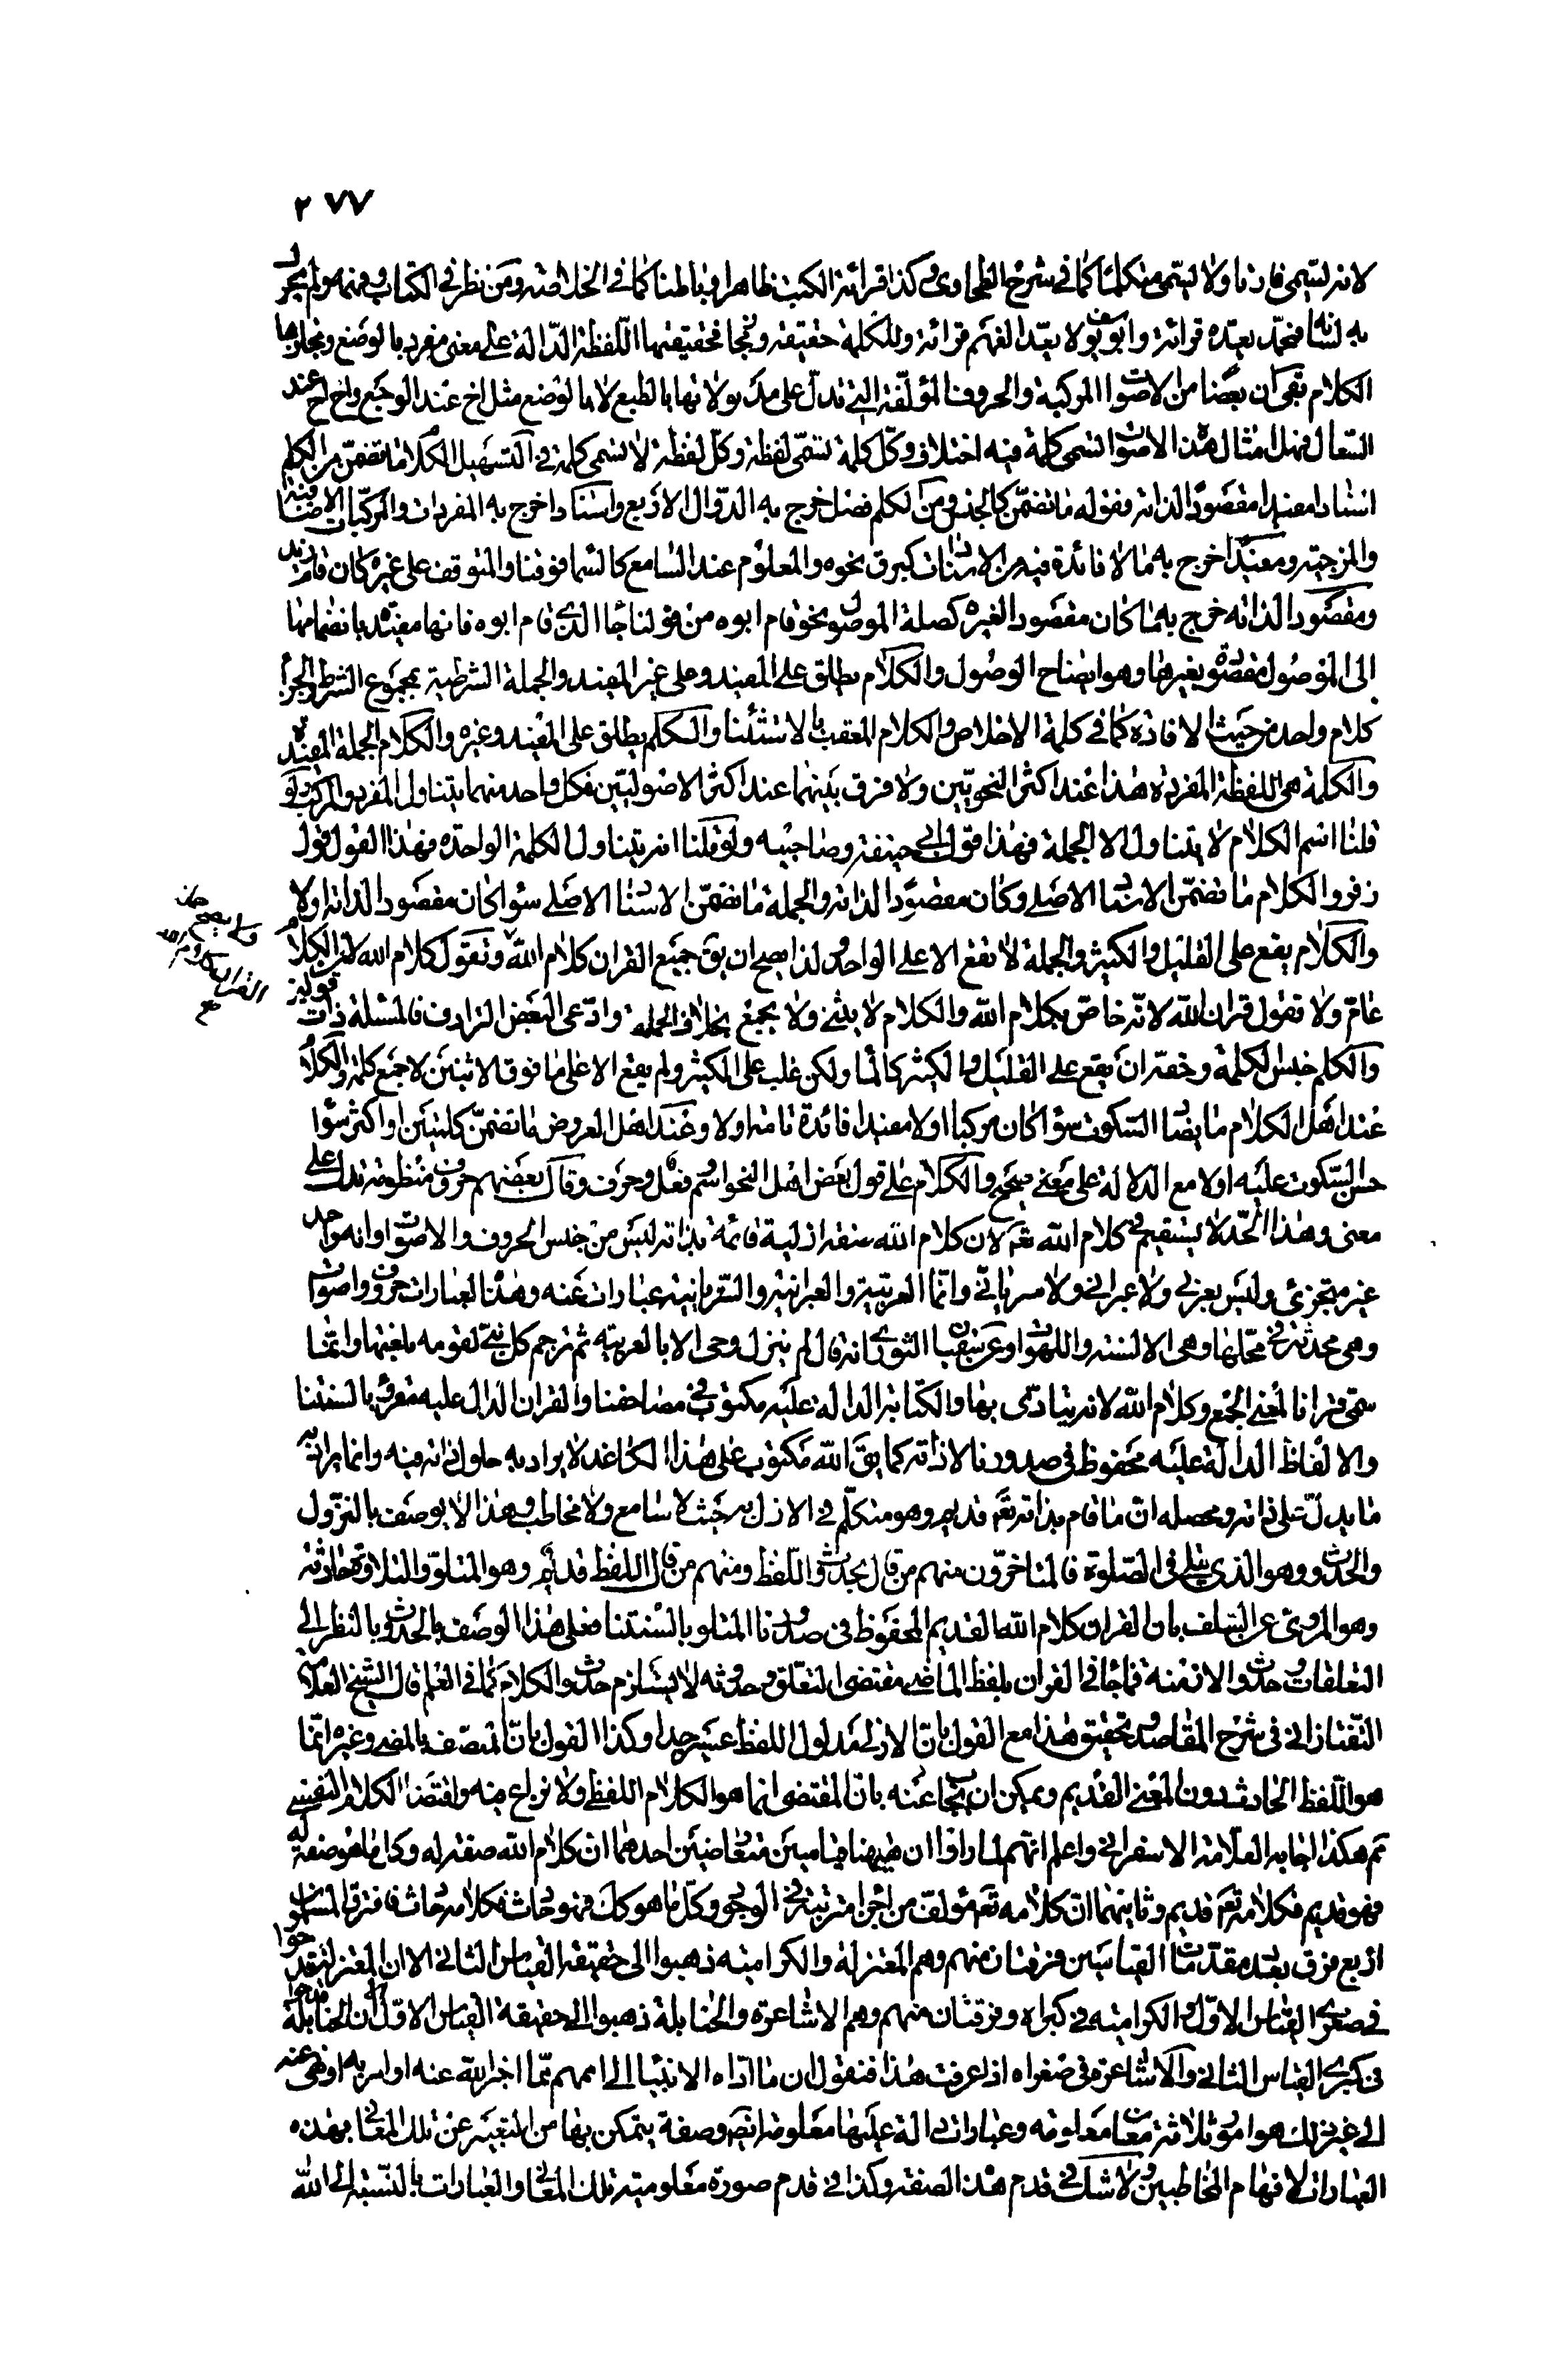 ٢٧٧
لانه يسمى قارئا ولا يسمى متكلما كما فى شرح الطحاوى وكذا قرائة الكتب ظاهرا وباطنا كما فى الخلاصة ومن نظر فى الكتاب وفهمه ولم يحرك
به لسانه فمحمد يعده قرائة وابو يوسف لا يعد الفهم قرائة وللكلمة حقيقة ومجاز فحقيقتها اللفظة الدالة على معنى مفرد بالوضع ومجازها
الكلام بقى ان بعضا من الاصوات المركبة والحروف المؤلفة التى تدل على مدلولاتها بالطبع لا بالوضع مثل اخ عند الوجع واح اح عند
السعال فهل امثال هذه الاصوات تسمى كلمة فيه اختلاف وكل كلمة تسمى لفظة وكل لفظة لا تسمى كلمة فى التسهيل الكلام ما تضمن من الكلم
اسنادا مفيدا مقصودا لذاته فقوله ما تضمن كالجنس ومن الكلم فصل خرج به الدوال الاربع واسنادا خرج به المفردات والمركبات الاضافية
والمزجية ومفيدا خرج به ما لا فائدة فيه من الاسنادات كبرق نحره والمعلوم عند السامع كالسماء فوقنا والمتوقف على غيره كان قام زيد
ومقصودا لذاته خرج به ما كان مقصودا لغيره كصلة الموصول نحو قام ابوه من قولنا جاء الذى قام ابوه فانها مفيدة بانضمامها
الى الموصول مقصودة بغيرها وهو ايضاح الموصول والكلام يطلق على المفيد وعلى غير المفيد والجملة الشرطية بمجموع الشرط والجزاء
كلام واحد من حيث الافادة كما فى كلمة الاخلاص والكلام المعقب بالاستثناء والتكلم يطلق على المفيد وغيره والكلام الجملة المفيدة
والكلمة هى اللفظة المفردة هذا عند اكثر النحويين ولا فرق بينهما عند اكثر الاصوليين فكل واحد منهما يتناول المفرد والمركب ولو
قلنا اسم الكلام لا يتناول الا الجملة فهذا قول ابى حنيفة وصاحبيه ولو قلنا انه يتناول الكلمة الواحدة فهذا القول قول
زفر والكلام ما تضمن الاسناد الاصلى وكان مقصودا لذاته والجملة ما تضمن الاسناد الاصلى سواء كان مقصودا لذاته او لا
والكلام يقع على القليل والكثير والجملة لا تقع الا على الواحد ولذا يصح ان يق جميع القران كلام الله وتقول كلام الله لان الكلام
عام ولا تقول قران الله لانه خاص بكلام الله والكلام لا يثنى ولا يجمع بخلاف الجملة وادعى البعض الترادف فالمسئلة ذات قولين
والكلم جنس لكلمة وحقه ان يقع على القليل والكثير كالماء ولكن غلب على الكثير ولم يقع الا على ما فوق الاثنين لا جمع كلمة والكلام
عند اهل الكلام ما يضاد السكوت سواء كان مركبا او لا مفيدا فائدة تامة او لا وعند اهل العروض ما تضمن كلمتين او اكثر سواء
حسن السكوت عليه او لا مع الدلالة على معنى صحيح والكلام على قول بعض اهل النحو اسم وفعل وحرف وقال بعضهم حروف منظومة تدل على
معنى وهذا الحد لا يستقيم فى كلام الله تعالى لان كلام الله صفة ازلية قائمة بذاته ليس من جنس الحروف والاصوات وانه واحد
غير متجزئ وليس بعربى ولا عبرانى ولا سريانى وانما العربية والعبرانية والسريانية عبارات عنه وهذه العبارات حروف واصوات
وهى محدثة فى محلها وهى الالسنة واللهوات وعن سفيان الثورى انه قال لم ينزل وحى الا بالعربية ثم ترجم كل نبى لقومه بلغتها وانما
سمى قرانا لمعنى الجمع وكلام الله لانه يتادى بها والكتابة الدالة عليه مكتوب فى مصاحفنا والقران الدال عليه مقروء بالسنتنا
والالفاظ الدالة عليه محفوظ فى صدورنا لا ذاته كما يق الله مكتوب على هذا الكاغد لا يراد به حلول ذاته فيه وانما يراد به
ما يدل على ذاته ومحصله ان ما قام بذاته تع قديم وهو متكلم فى الازل به حيث لا سامع ولا مخاطب وهذا لا يوصف بالنزول
والحدوث وهو الذى يتلى فى الصلوة فالمتاخرون منهم من قال بحدوث اللفظ ومنهم من قال اللفظ قديم وهو المتلو والتلاوة حادثة
وهو المروى عن السلف بان القران كلام الله القديم المحفوظ فى صدورنا المتلو بالسنتنا فعلى هذا الوصف بالحدوث بالنظر الى
التعلقات وحدوث الازمنة فما جاء فى القران بلفظ الماضى مقتضى التعلق وحدوثه لا يستلزم حدوث الكلام كما فى العلم قال الشيخ العلامة
التفتازانى فى شرح المقاصد وتحقيق هذا مع القول بان الازلى مدلول اللفظ عسير جدا وكذا القول بان المتصف بالمضى وغيره انما
هو اللفظ الحادث دون المعنى القديم ويمكن ان يجاب عنه بان المقتضى انما هو الكلام اللفظى ولا نزاع فيه واقتضاء الكلام النفسى
تم هكذا اجابه العلامة الاسفراينى واعلم انهم لما راوا ان ههنا قياسين متعارضين احدهما ان كلام الله صفة له وكل ما هو صفة له
فهو قديم فكلامه تع قديم وثانيهما ان كلامه تع مؤلف من اجزاء مترتبة فى الوجود وكل ما هو كذلك فهو حادث فكلامه حادث فافترق المسلمون
اربع فرق بعدد مقدمات القياسين فرقتان منهم وهم المعتزلة والكرامية ذهبوا الى حقيقة القياس الثانى الا ان المعتزلة قدحوا
فى صغرى القياس الاول والكرامية فى كبراه وفرقتان منهم وهم الاشاعرة والحنابلة ذهبوا الى حقيقة القياس الاول الا ان الحنابلة قدحوا
فى كبرى القياس الثانى والاشاعرة فى صغراه اذا عرفت هذا فنقول ان ما اداه الانبياء الى اممهم مما اخبر الله عنه او امر به او نهى عنه
الى غير ذلك هو امور ثلاثة معان معلومة وعبارات دالة عليها معلومة ايضا وصفة يتمكن بها من التعبير عن تلك المعانى بهذه
العبارات لافهام المخاطبين ولا شك فى قدم هذه الصفة وكذا فى قدم صورة معلومية تلك المعانى والعبارات بالنسبة الى الله